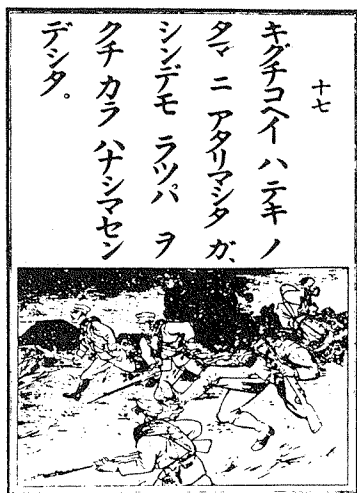 十七
キグチコヘイ ハ テキ ノ
タマ ニ アタリマシタ ガ、
シンデモ ラッパ ヲ
クチ カラ ハナシマセン
デシタ。